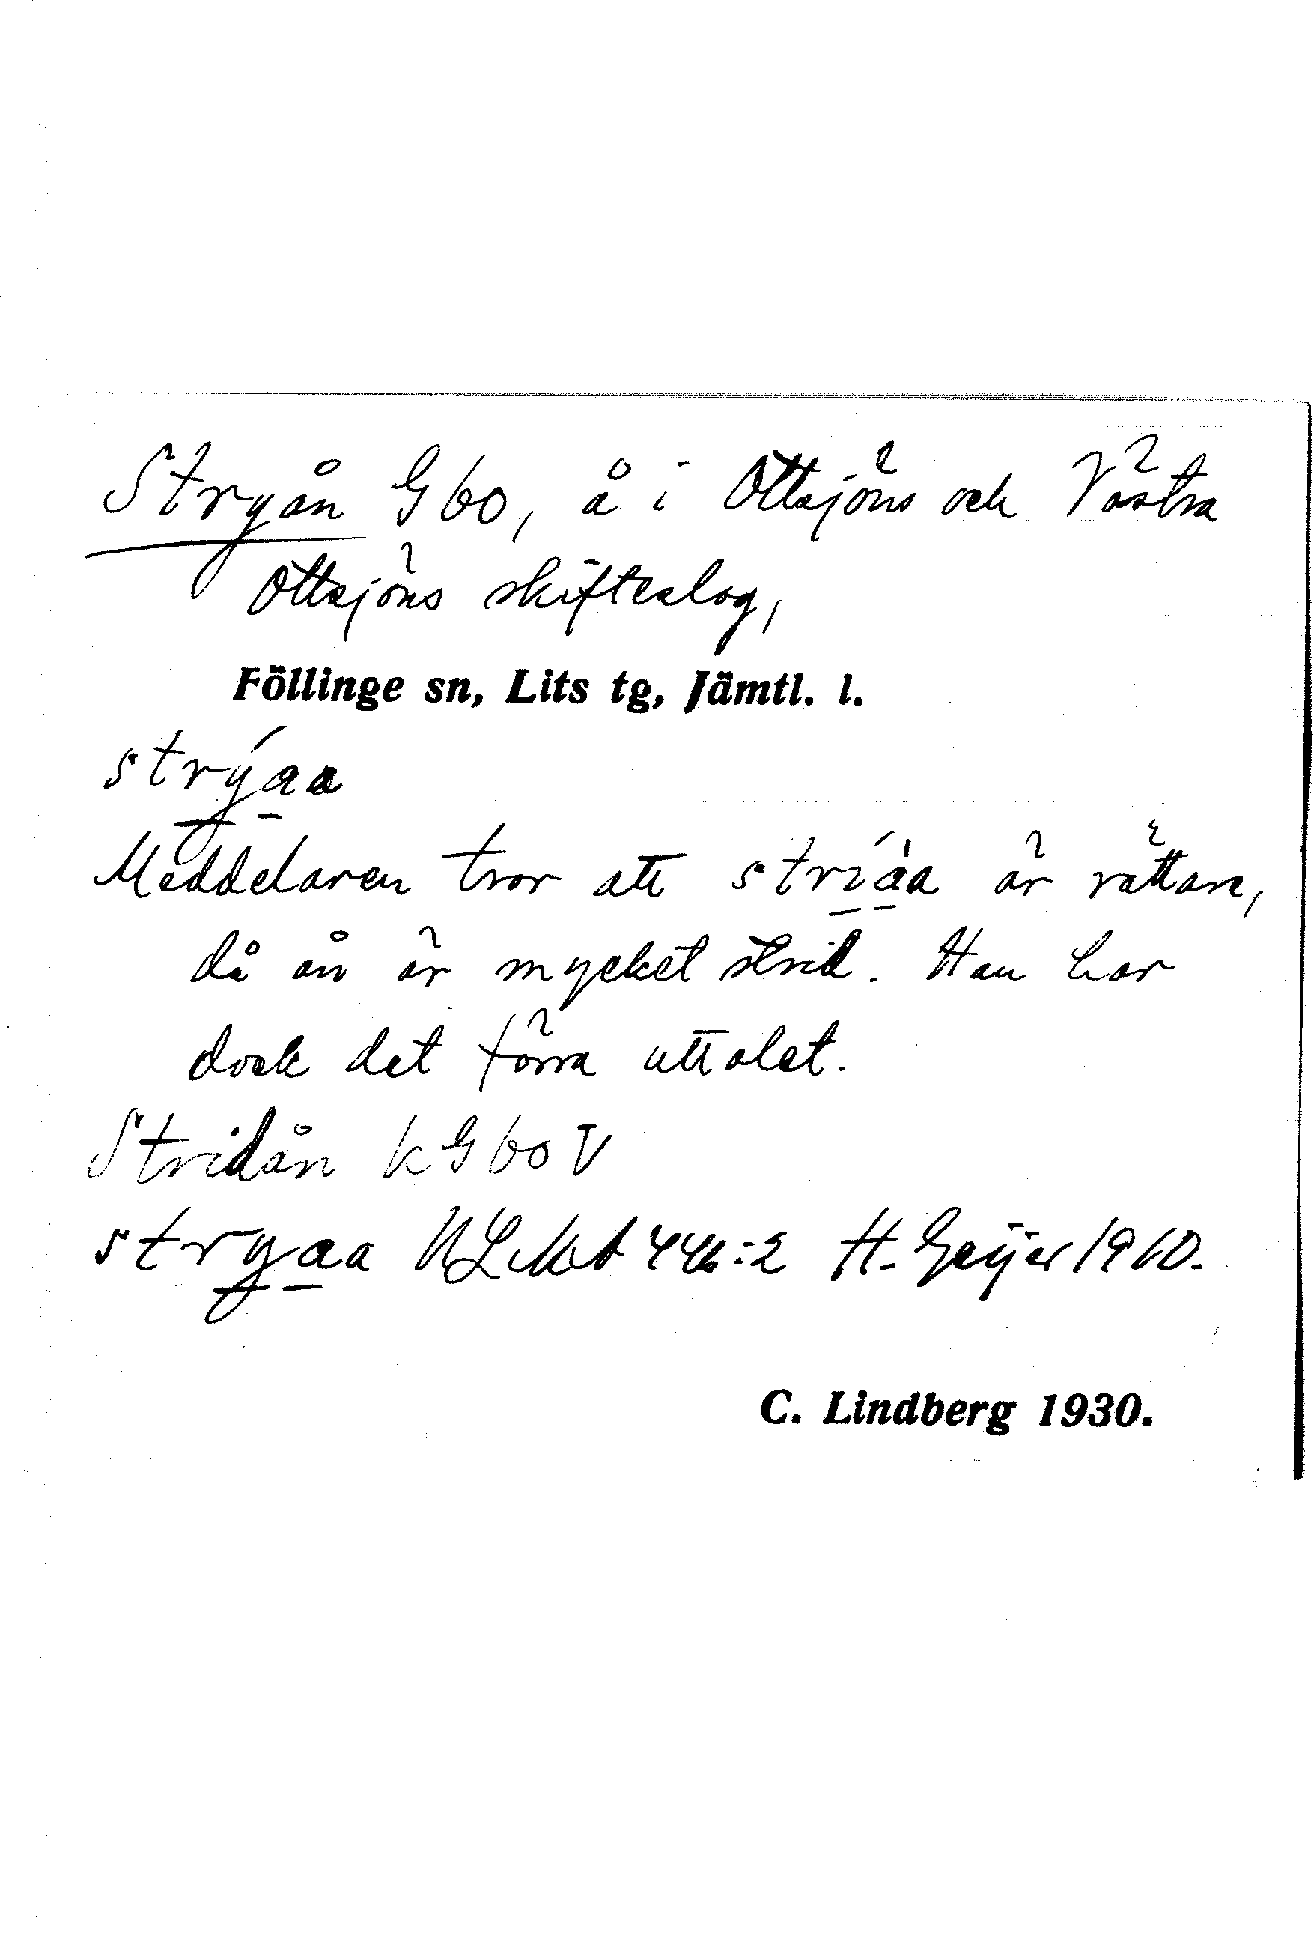 Stryån G60, å i Ottsjöns och Västra
Ottsjöns skifteslag,
Föllinge sn, Lits tg, Jämtl. l.
strýaa
Meddelaren tror att stríàa är rättare,
då ån är mycket strid. Han har
dock det förra uttalet.
Stridån kG60V
stryaa ULMA 446:2 H. Geijer 1910.
C. Lindberg 1930.